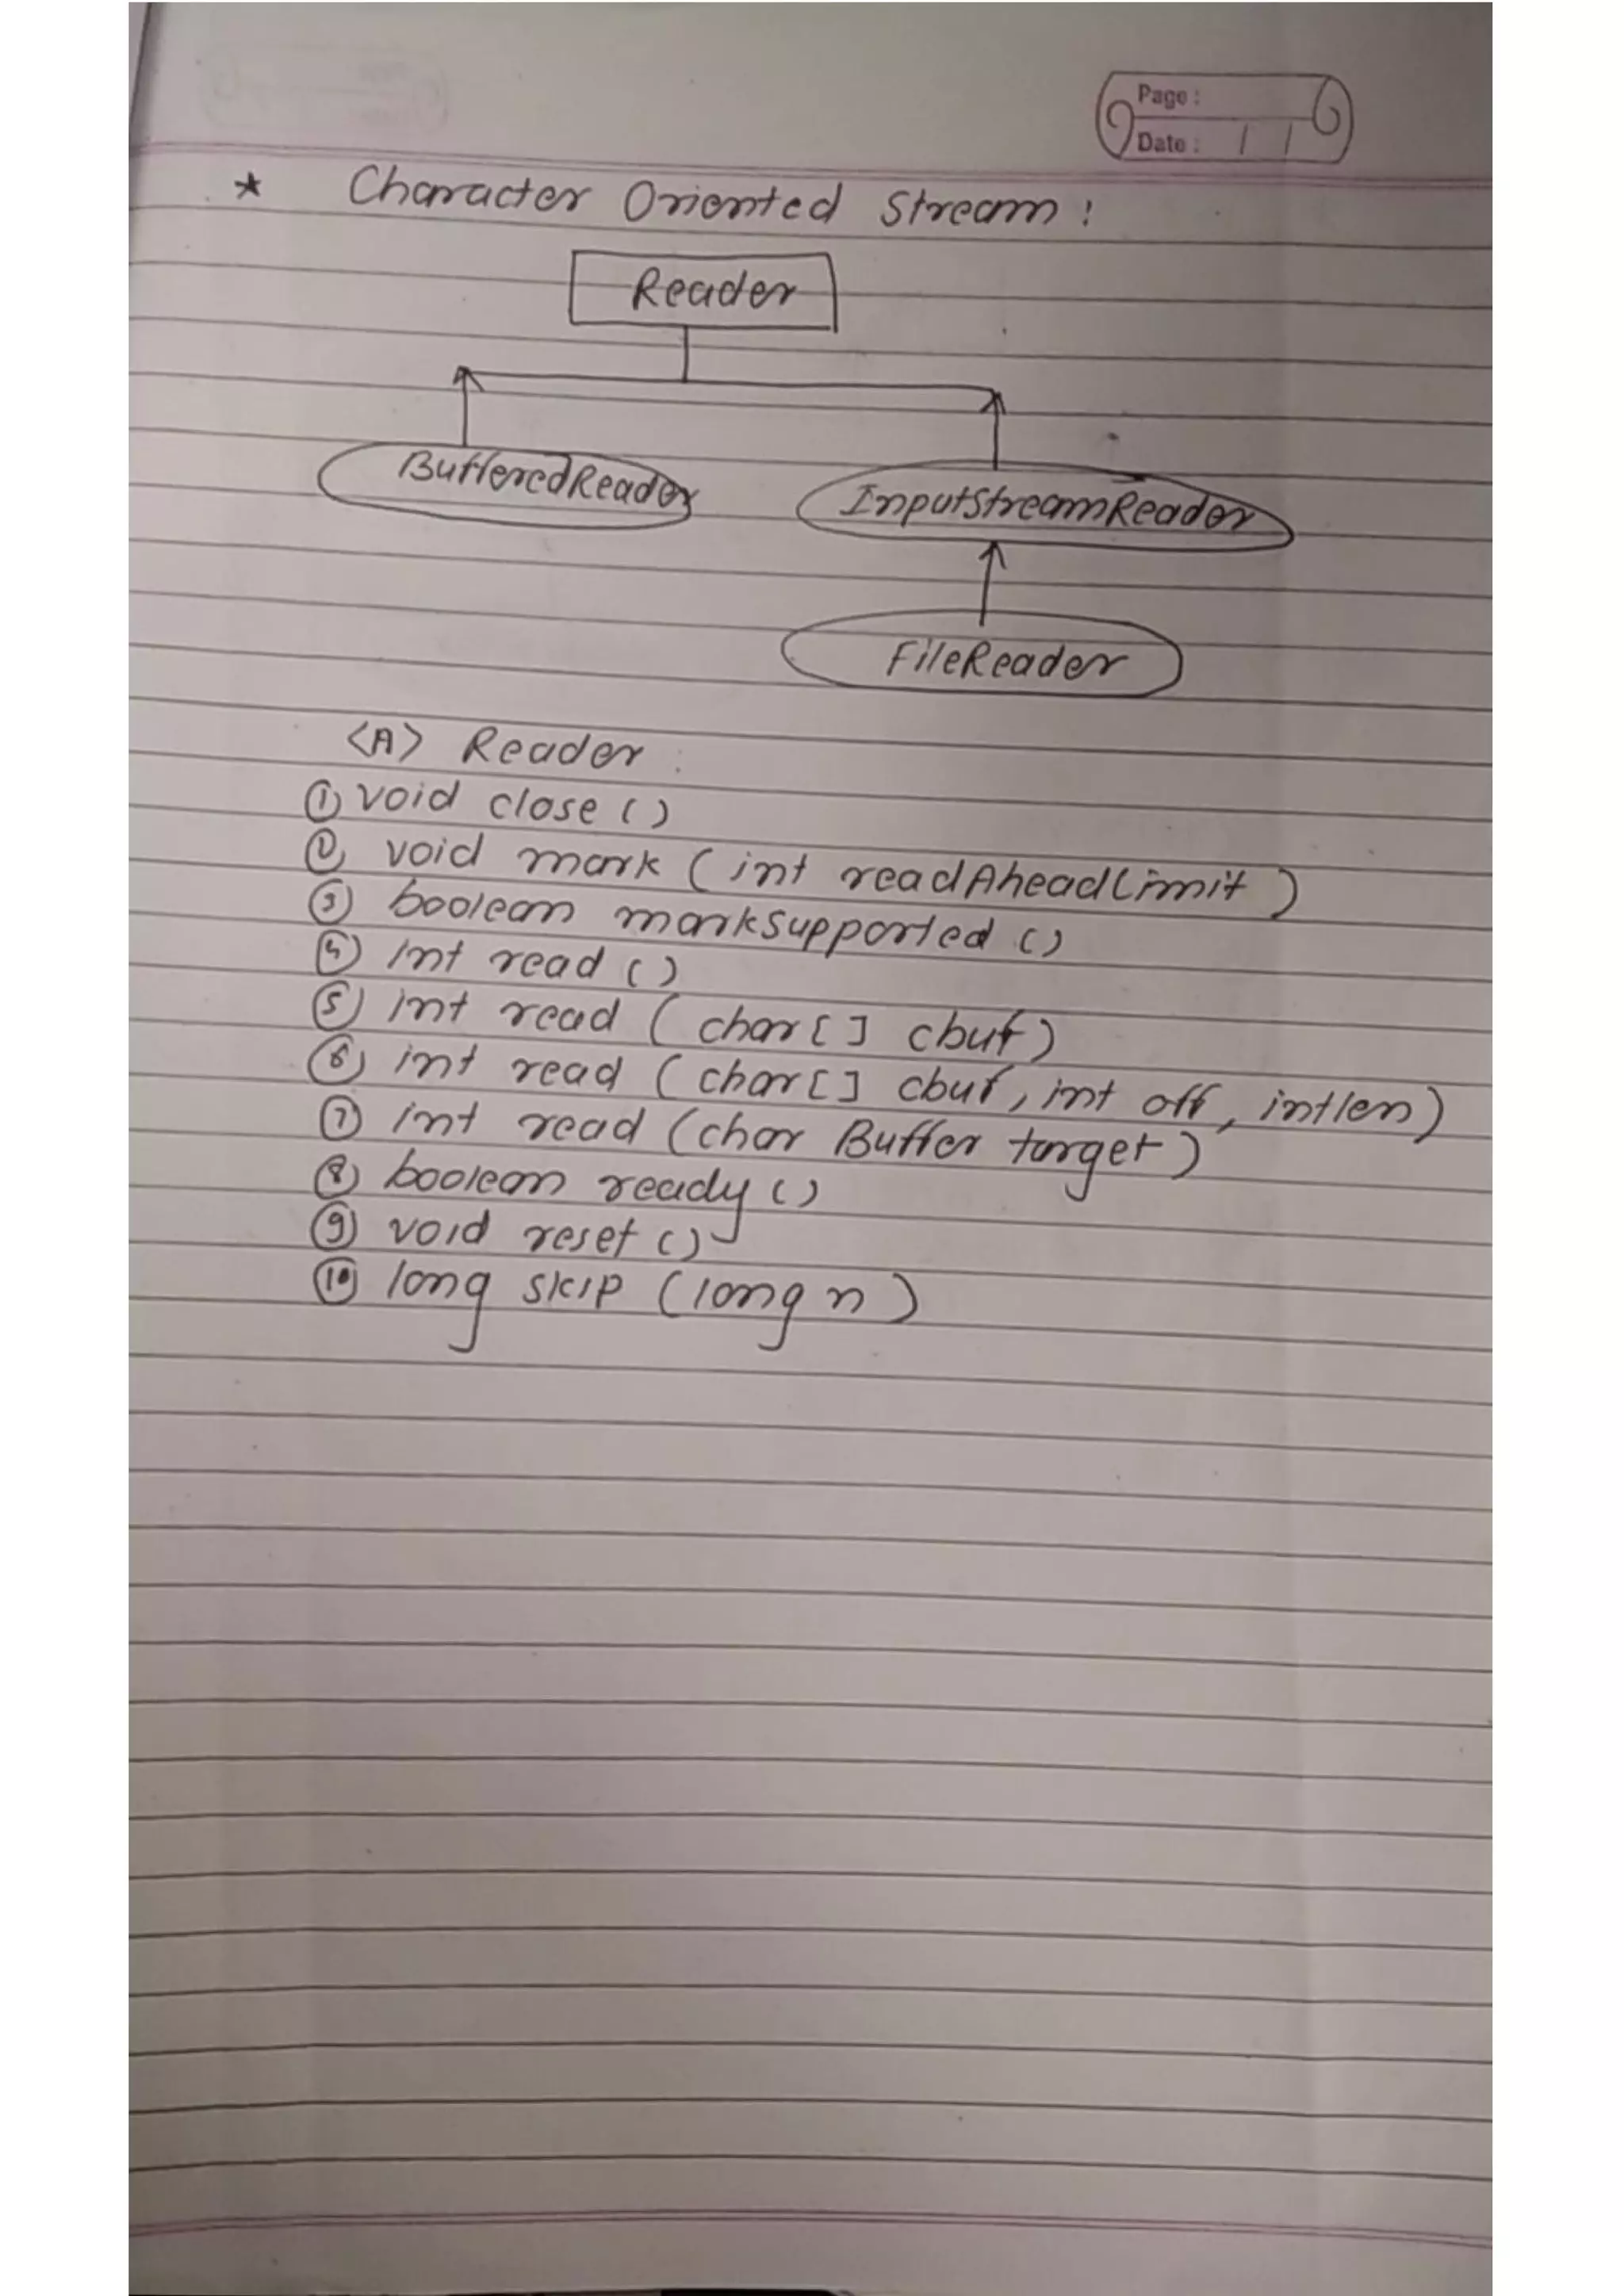 Page :
Date : / /
* Character Oriented Stream :
Reader
BufferedReader
InputStreamReader
FileReader
<A> Reader :
① void close ( )
② void mark ( int readAheadLimit )
③ boolean marksupported ( )
④ int read ( )
⑤ int read ( char [ ] cbuf )
⑥ int read ( char [ ] cbuf , int off , int len )
⑦ int read ( char Buffer target )
⑧ boolean ready ( )
⑨ void reset ( )
⑩ long skip ( long n )